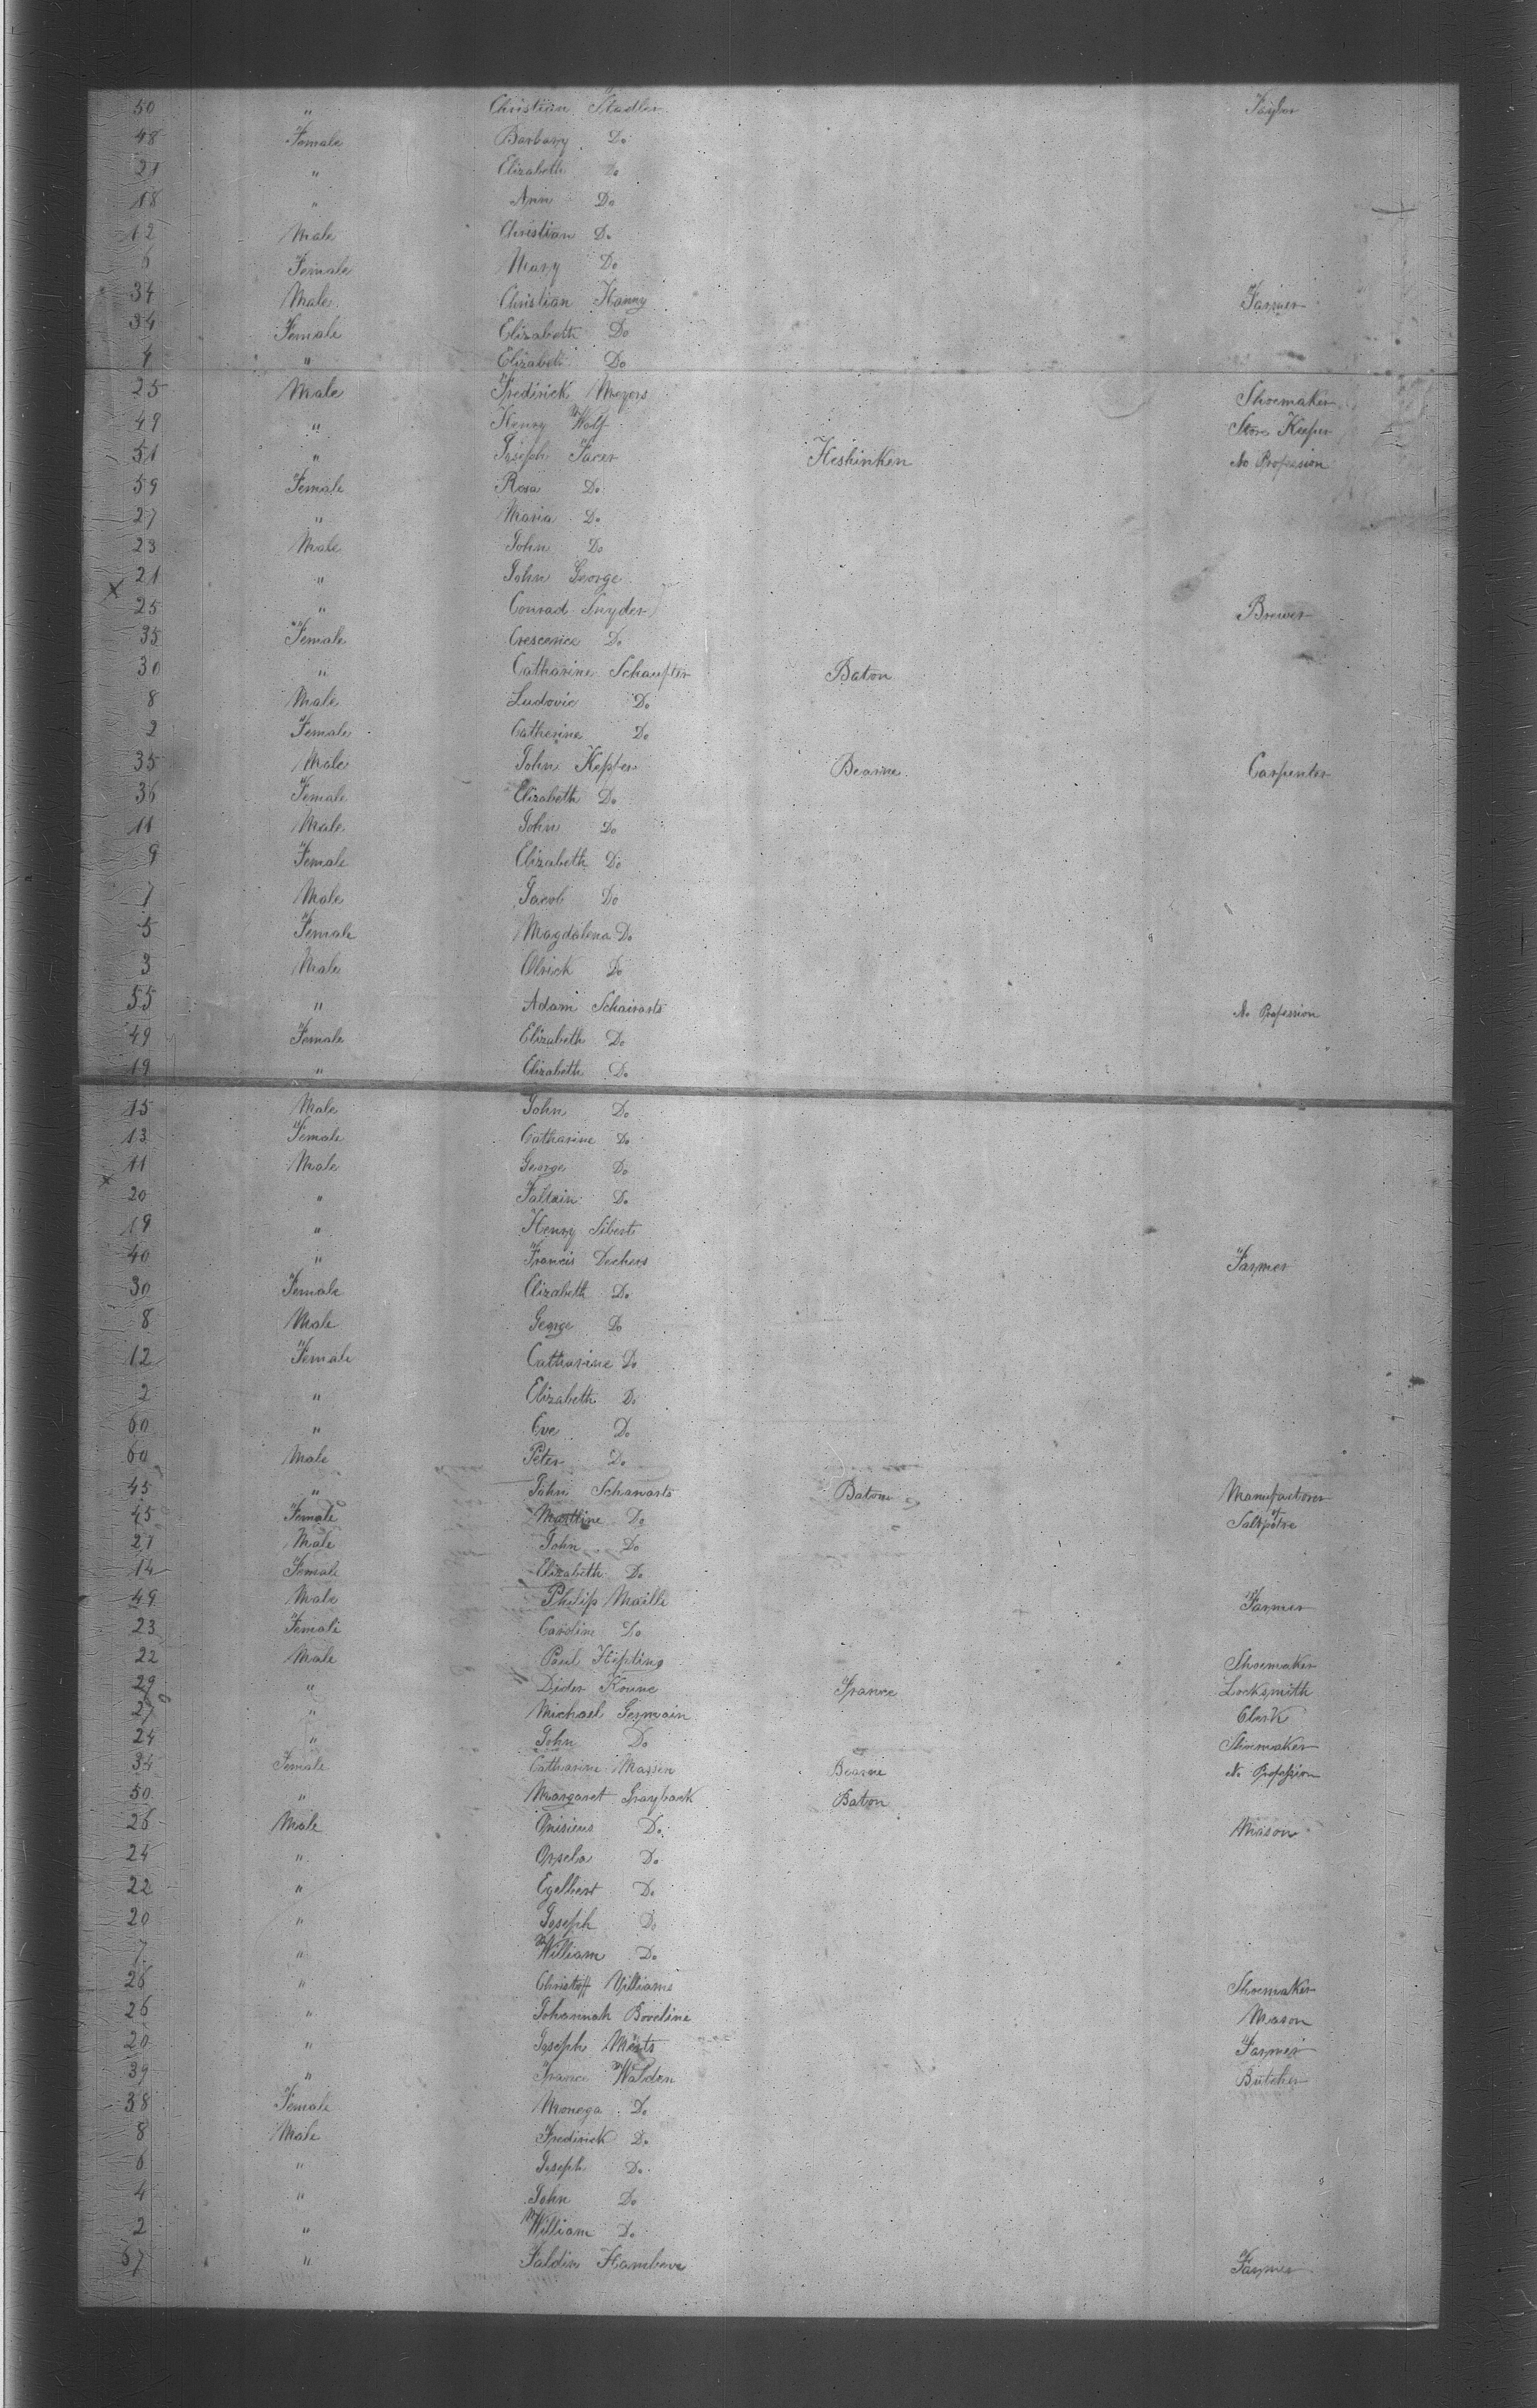 50 " Christian Stadler Taylor
48 Female Barbary Do
21 " Elizabeth Do
18 " Ann Do
12 Male Christian Do
6 Female Mary Do
34 Male Christian Hanny Farmer
34 Female Elizabeth Do
4 " Elizabeth Do
25 Male Fredirick Meyers Shoemaker
49 " Henry Wolf Store Keeper
51 " Joseph Facer Heshinken No Profession
59 Female Rosa Do
27 " Maria Do
23 Male John Do
21 " John George
25 " Conrad Snyder Brewer
35 Female Crescence Do
30 " Catharine Schaufter Baton
8 Male Ludovic Do
2 Female Catherine Do
35 Male John Kepfer Bearne Carpenter
36 Female Elizabeth Do
11 Male John Do
9 Female Elizabeth Do
7 Male Jacob Do
5 Female Magdalena Do
3 Male Olrick Do
55 " Adam Schwarts No Profession
49 Female Elizabeth Do
19 " Elizabeth Do
15 Male John Do
13 Female Catharine Do
11 Male George Do
20 " Faltin Do
19 " Henry Sibert
40 " Francis Deckers Farmer
30 Female Elizabeth Do
8 Male George Do
12 Female Catharine Do
2 " Elizabeth Do
60 " Eve Do
60 Male Peter Do
45 " John Schawarts Baton Manufactorer of
45 Female Martline Do Saltpetre
27 Male John Do
14 Female Elizabeth Do
49 Male Philip Maille Farmer
23 Female Caroline Do
22 Male Paul Hipling Shoemaker
29 " Dider Koune France Locksmith
27 " Michael Germain Clerk
24 " John Do Shoemaker
34 Female Catharine Massin Bearne No Profession
50 " Margaret Grayback Baton
26 Male Onisiens Do Mason
24 " Orsela Do
22 " Egelbert Do
20 " Joseph Do
7 " William Do
26 " Christoff Williams Shoemaker
26 " Johannah Boveline Mason
20 " Joseph Merts Farmer
39 " France Walden Butcher
38 Female Monega Do
8 Male Fredirick Do
6 " Joseph Do
4 " John Do
2 " William Do
67 " Faldin Hambeve Farmer